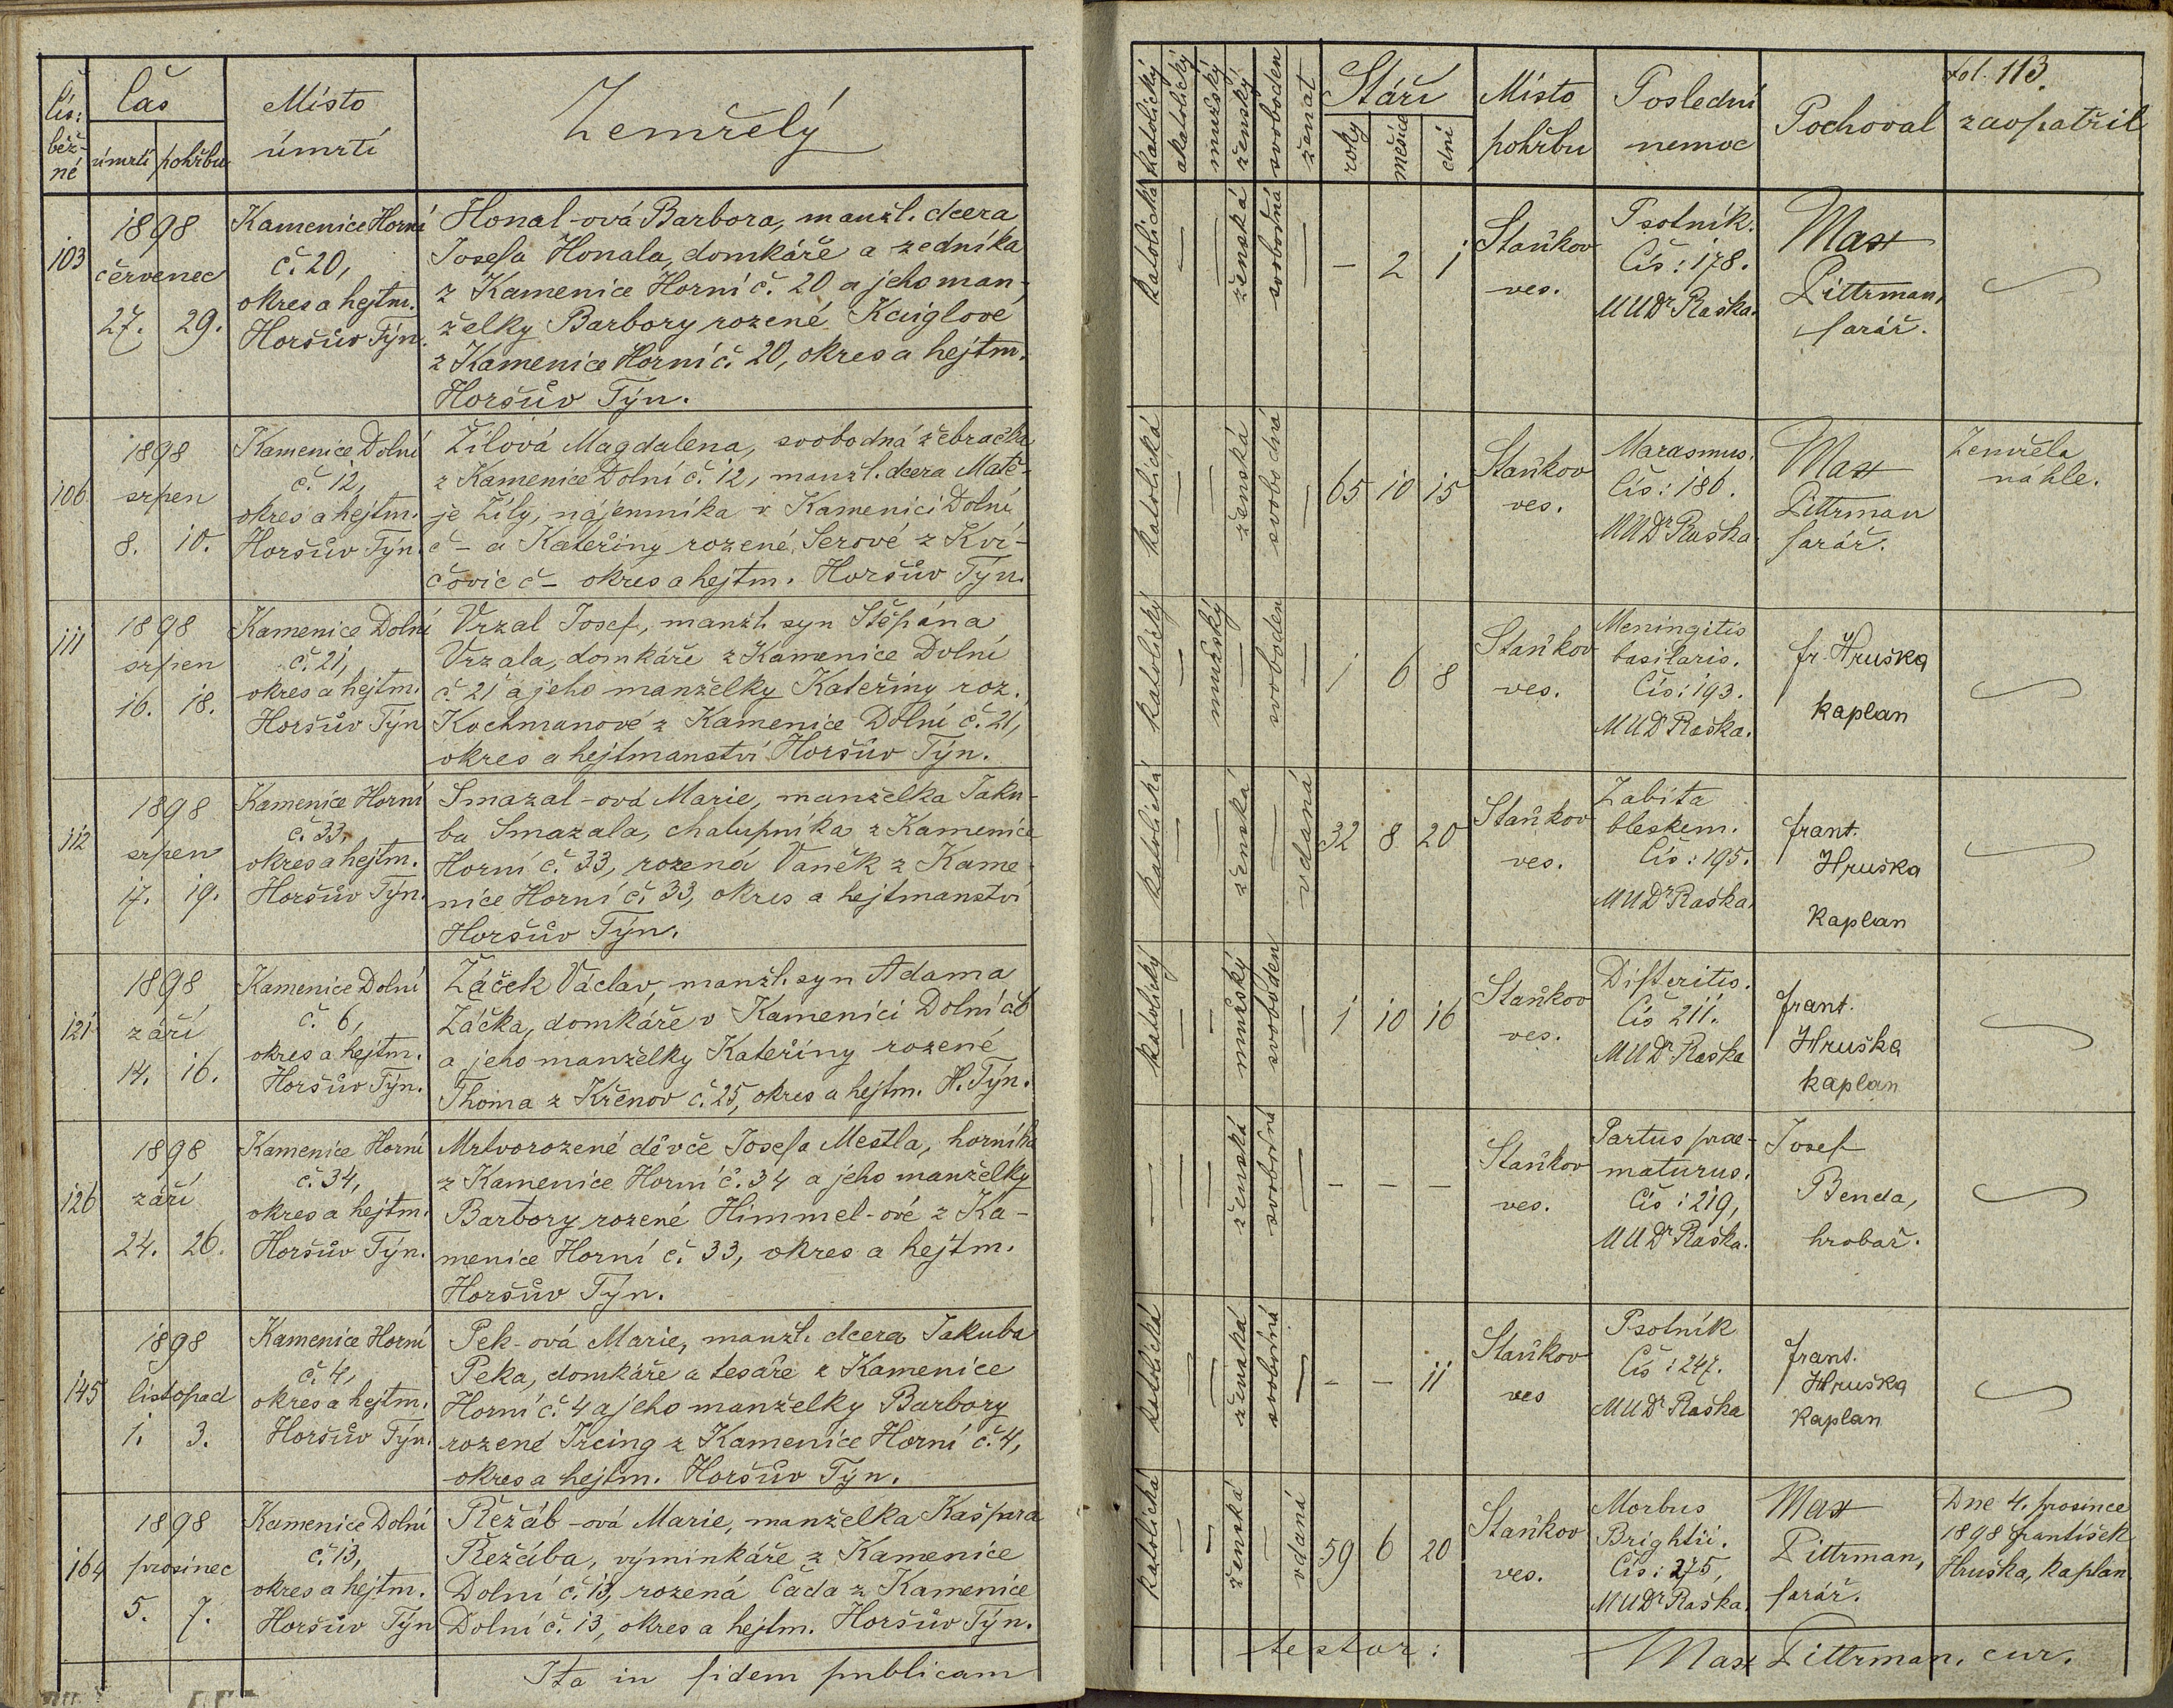 Čís: běž- né
Čas
úmrtí pohřbu
Místo úmrtí
Zemřelý
103
1898
červenec
27. 29.
Kamenice Horní
č. 20,
okres a hejtm.
Horšův Týn.
Honal-ová Barbora, manžl. dcera
Josefa Honala, domkáře a zedníka
z Kamenice Horní č. 20 a jeho man-
želky Barbory rozené Kaiglove
z Kamenice Horní č. 20, okres a hejtm.
Horšův Týn.
106
1898
srpen
8. 10.
Kamenice Dolní
č. 12,
okres a hejtm.
Horšův Týn.
Žílová Magdalena, svobodná žebračka
z Kamenice Dolní č. 12, manžl. dcera Matě-
je Žíly, nájemníka v Kamenici Dolní
č - a Kateřiny rozené Serové z Kvi-
čovic č - okres a hejtm. Horšův Týn.
111
1898
srpen
16. 18.
Kamenice Dolní
č. 21,
okres a hejtm.
Horšův Týn
Vrzal Josef, manžl. syn Štěpána
Vrzala, domkáře z Kamenice Dolní
č. 21 a jeho manželky Kateřiny roz.
Kochmanové z Kamenice Dolní č. 21,
okres a hejtmanství Horšův Týn.
112
1898
srpen
17. 19.
Kamenice Horní
č. 33,
okres a hejtm.
Horšův Týn.
Smazal-ová Marie, manželka Jaku-
ba Smazala, chalupníka z Kamenice
Horní č. 33, rozená Vaněk z Kame-
nice Horní č. 33, okres a hejtmanství
Horšův Týn.
121
1898
září
14. 16.
Kamenice Dolní
č. 6,
okres a hejtm.
Horšův Týn.
Žáček Václav, manžl. syn Adama
Žáčka, domkáře v Kamenici Dolní č. 6
a jeho manželky Kateřiny rozené
Thoma z Křenov č. 25, okres a hejtm. H. Týn.
126
1898
září
24. 26.
Kamenice Horní
č. 34,
okres a hejtm.
Horšův Týn.
Mrtvorozené děvče Josefa Mestla, horníka
z Kamenice Horní č. 34 a jeho manželky
Barbory rozené Himmel-ové z Ka-
menice Horní č. 33, okres a hejtm.
Horšův Týn.
145
1898
listopad
1. 3.
Kamenice Horní
č. 4,
okres a hejtm.
Horšův Týn.
Pek-ová Marie, manžl. dcera Jakuba
Peka, domkáře a tesaře z Kamenice
Horní č. 4 a jeho manželky Barbory
rozené Ircing z Kamenice Horní č. 4,
okres a hejtm. Horšův Týn.
164
1898
prosinec
5. 7.
Kamenice Dolní
č. 13,
okres a hejtm.
Horšův Týn
Řežáb-ová Marie, manželka Kašpara
Řežába, výminkáře z Kamenice
Dolní č. 13, rozená Čada z Kamenice
Dolní č. 13, okres a hejtm. Horšův Týn.
Ita in fidem publicam
fol. 113.
katolický
akatolický
mužský
ženský
svoboden
ženat
Stáří
roky měsíce dní
Místo pohřbu
Poslední nemoc
Pochoval
zaopatřil
katolická — — ženská svobodná —
- 2 1
Staňkov
ves.
Psotník.
Čís: 178.
MUDr Raška.
Max
Pittrman,
farář.
katolická — — ženská svobodná —
65 10 15
Staňkov
ves.
Marasmus.
Čís: 186.
MUDr Raška
Max
Pittrman
farář.
Zemřela
náhle.
katolický — mužský — svoboden —
1 6 8
Staňkov
ves.
Meningitis
basilaris.
Čís: 193.
MUDr Raška.
fr. Hruška
kaplan
katolická — — ženská — vdaná
32 8 20
Staňkov
ves.
Zabita
bleskem.
Čís: 195.
MUDr Raška.
frant.
Hruška
kaplan
katolický — — mužský svoboden —
1 10 16
Staňkov
ves.
Difteritis.
Čís 211.
MUDr Raška
frant.
Hruška
kaplan
— — — ženská svobodná —
- - -
Staňkov
ves.
Partus prae-
maturus.
Čís: 219,
MUDr Raška.
Josef
Benda,
hrobař.
katolická — — ženská svobodná —
- - 11
Staňkov
ves
Psotník
Čís: 247.
MUDr Raška
frant.
Hruška
kaplan
katolická — — ženská — vdaná
59 6 20
Staňkov
ves.
Morbus
Brightii.
Čís: 275,
MUDr Raška.
Max
Pittrman,
farář.
Dne 4. prosince
1898 František
Hruška, kaplan
testor:
Max Pittrman, cur.